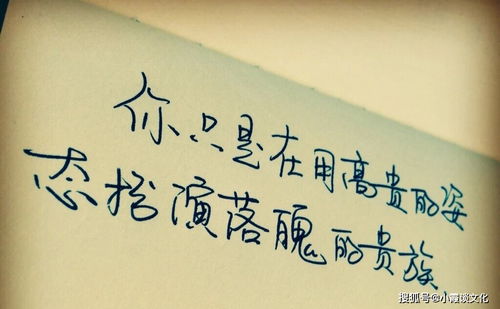 你只是在用高贵的姿
态扮演落魄的贵族
搜狐号@小霞谈文化